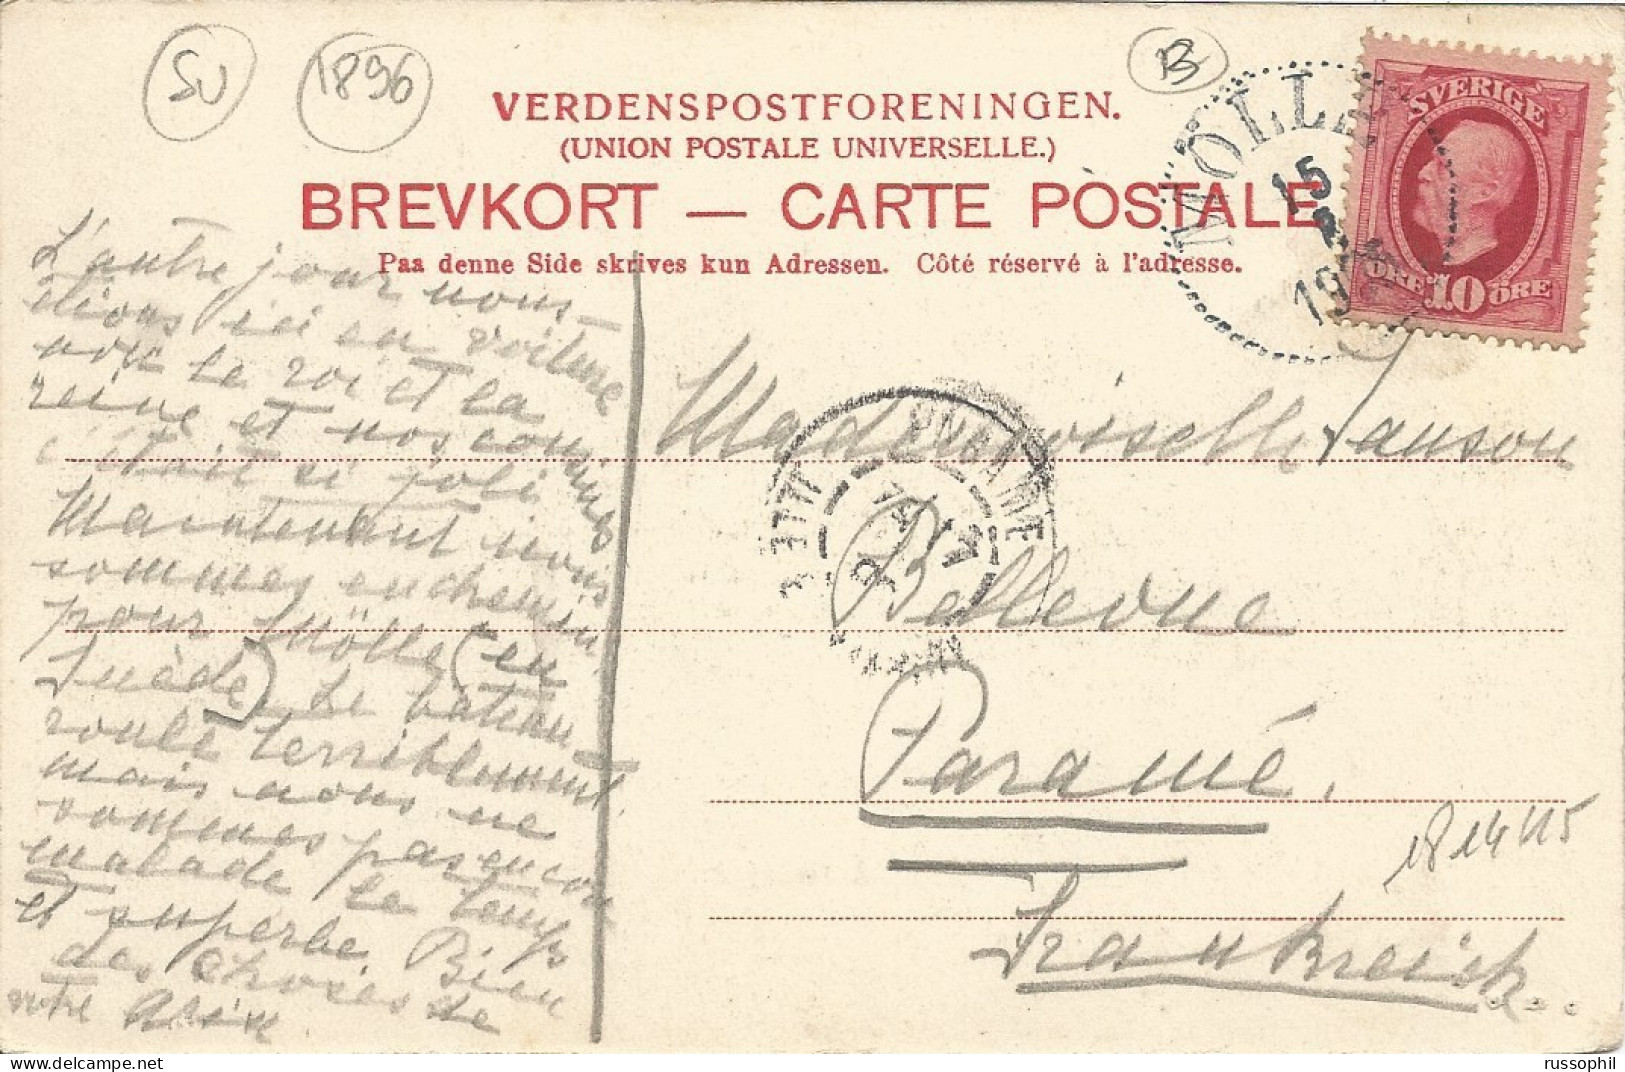 SU
1896
B
VERDENSPOSTFORENINGEN.
(UNION POSTALE UNIVERSELLE.)
BREVKORT — CARTE POSTALE
Paa denne Side skrives kun Adressen. Côté réservé à l'adresse.
MÖLLE
15
SVERIGE
10 ÖRE
L'autre jour nous
étions ici en voiture
avec le roi et la
reine et nos cousines
c'était si joli
Maintenant nous
sommes en chemin
pour Mölle (en
Suède) Le bateau
roule terriblement
mais nous ne
sommes pas encore
malade le temps
et superbe Bien
des choses de
votre
Mademoiselle
Bellevue
Paramé.
Frankreich
PARAMÉ
ILLE
1814115
russophil